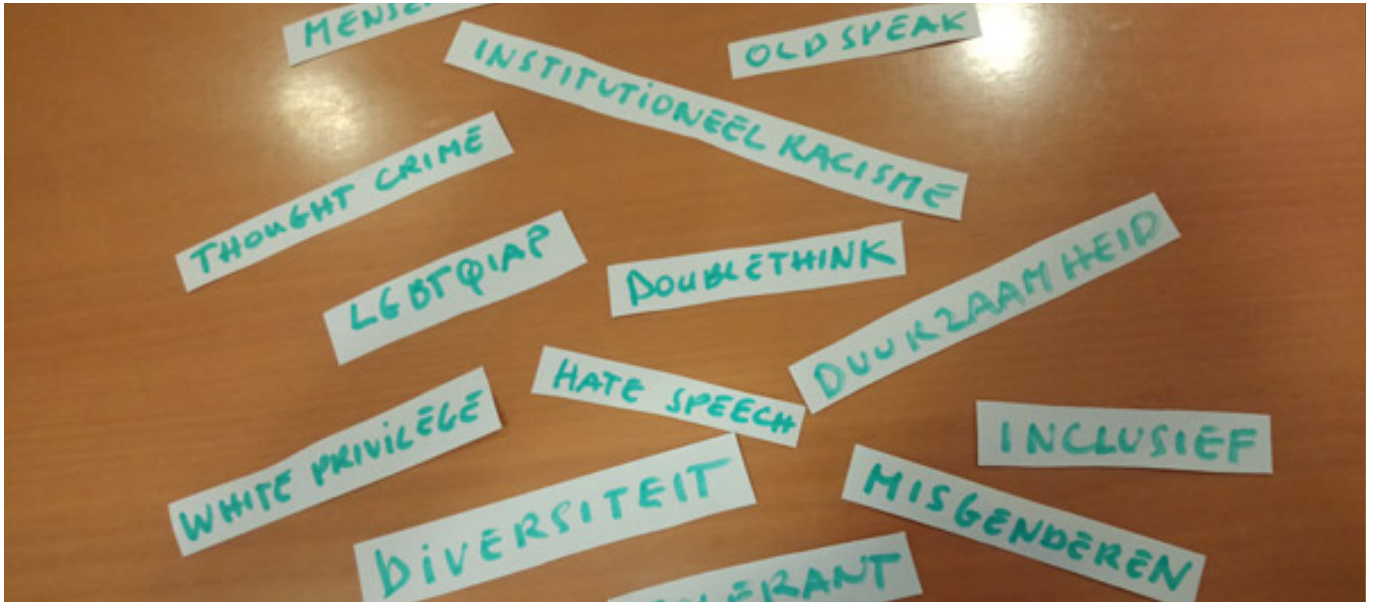 OLDSPEAK
INSTITUTIONEEL RACISME
THOUGHT CRIME
LGBTQIAP
DOUBLETHINK
DUURZAAMHEID
HATE SPEECH
WHITE PRIVILEGE
INCLUSIEF
DIVERSITEIT
MISGENDEREN